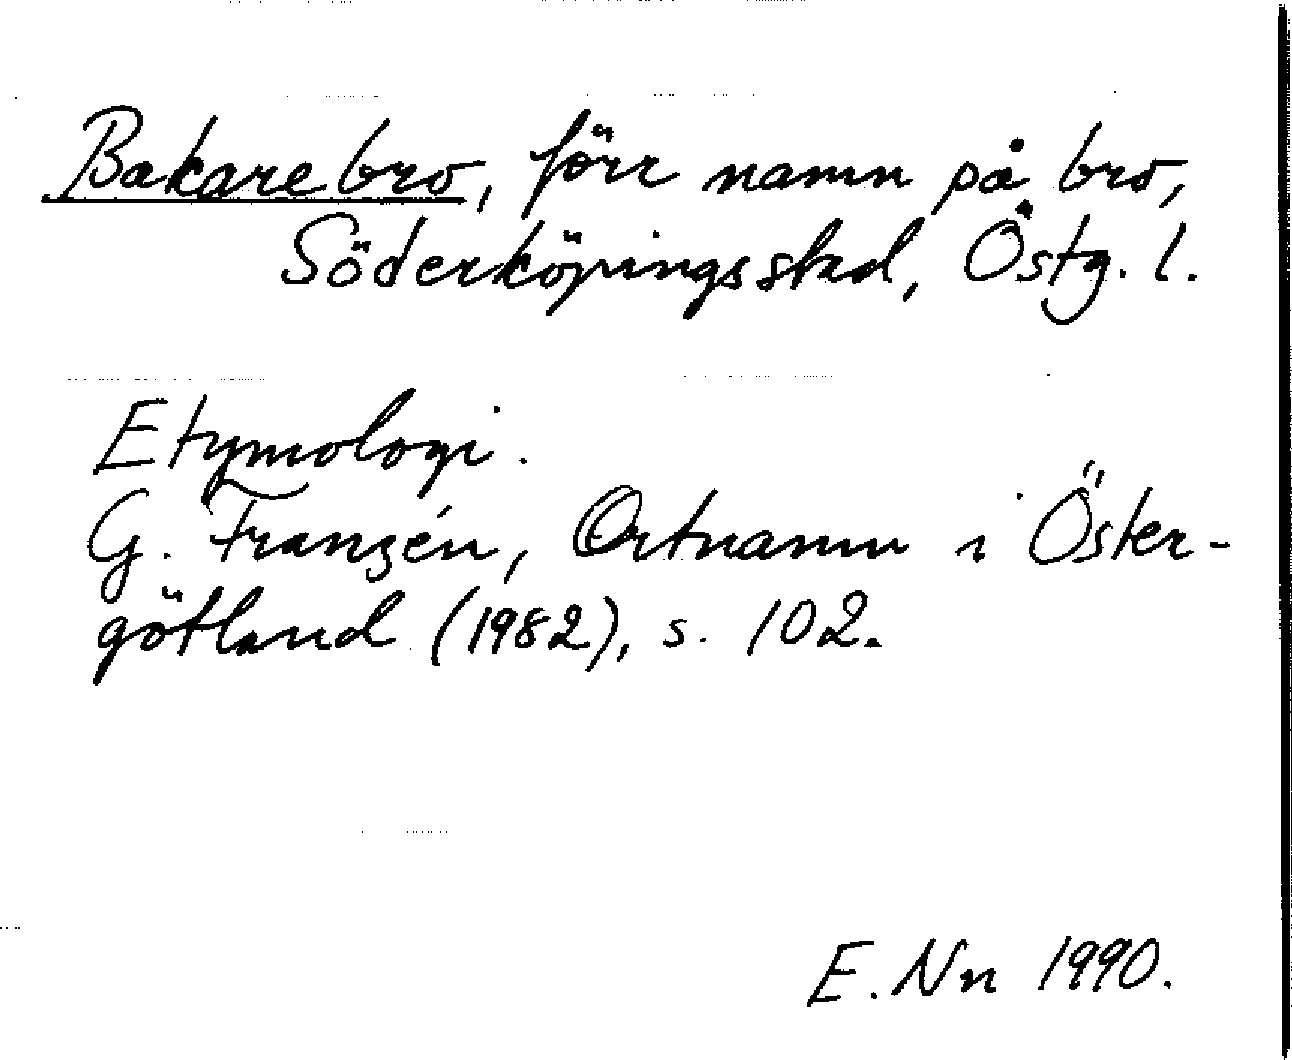 Bakarebro, förr namn på bro,
Söderköpings stad, Östg. l.
Etymologi.
G. Franzén, Ortnamn i Öster-
götland (1982), s. 102.
E. Nn 1990.